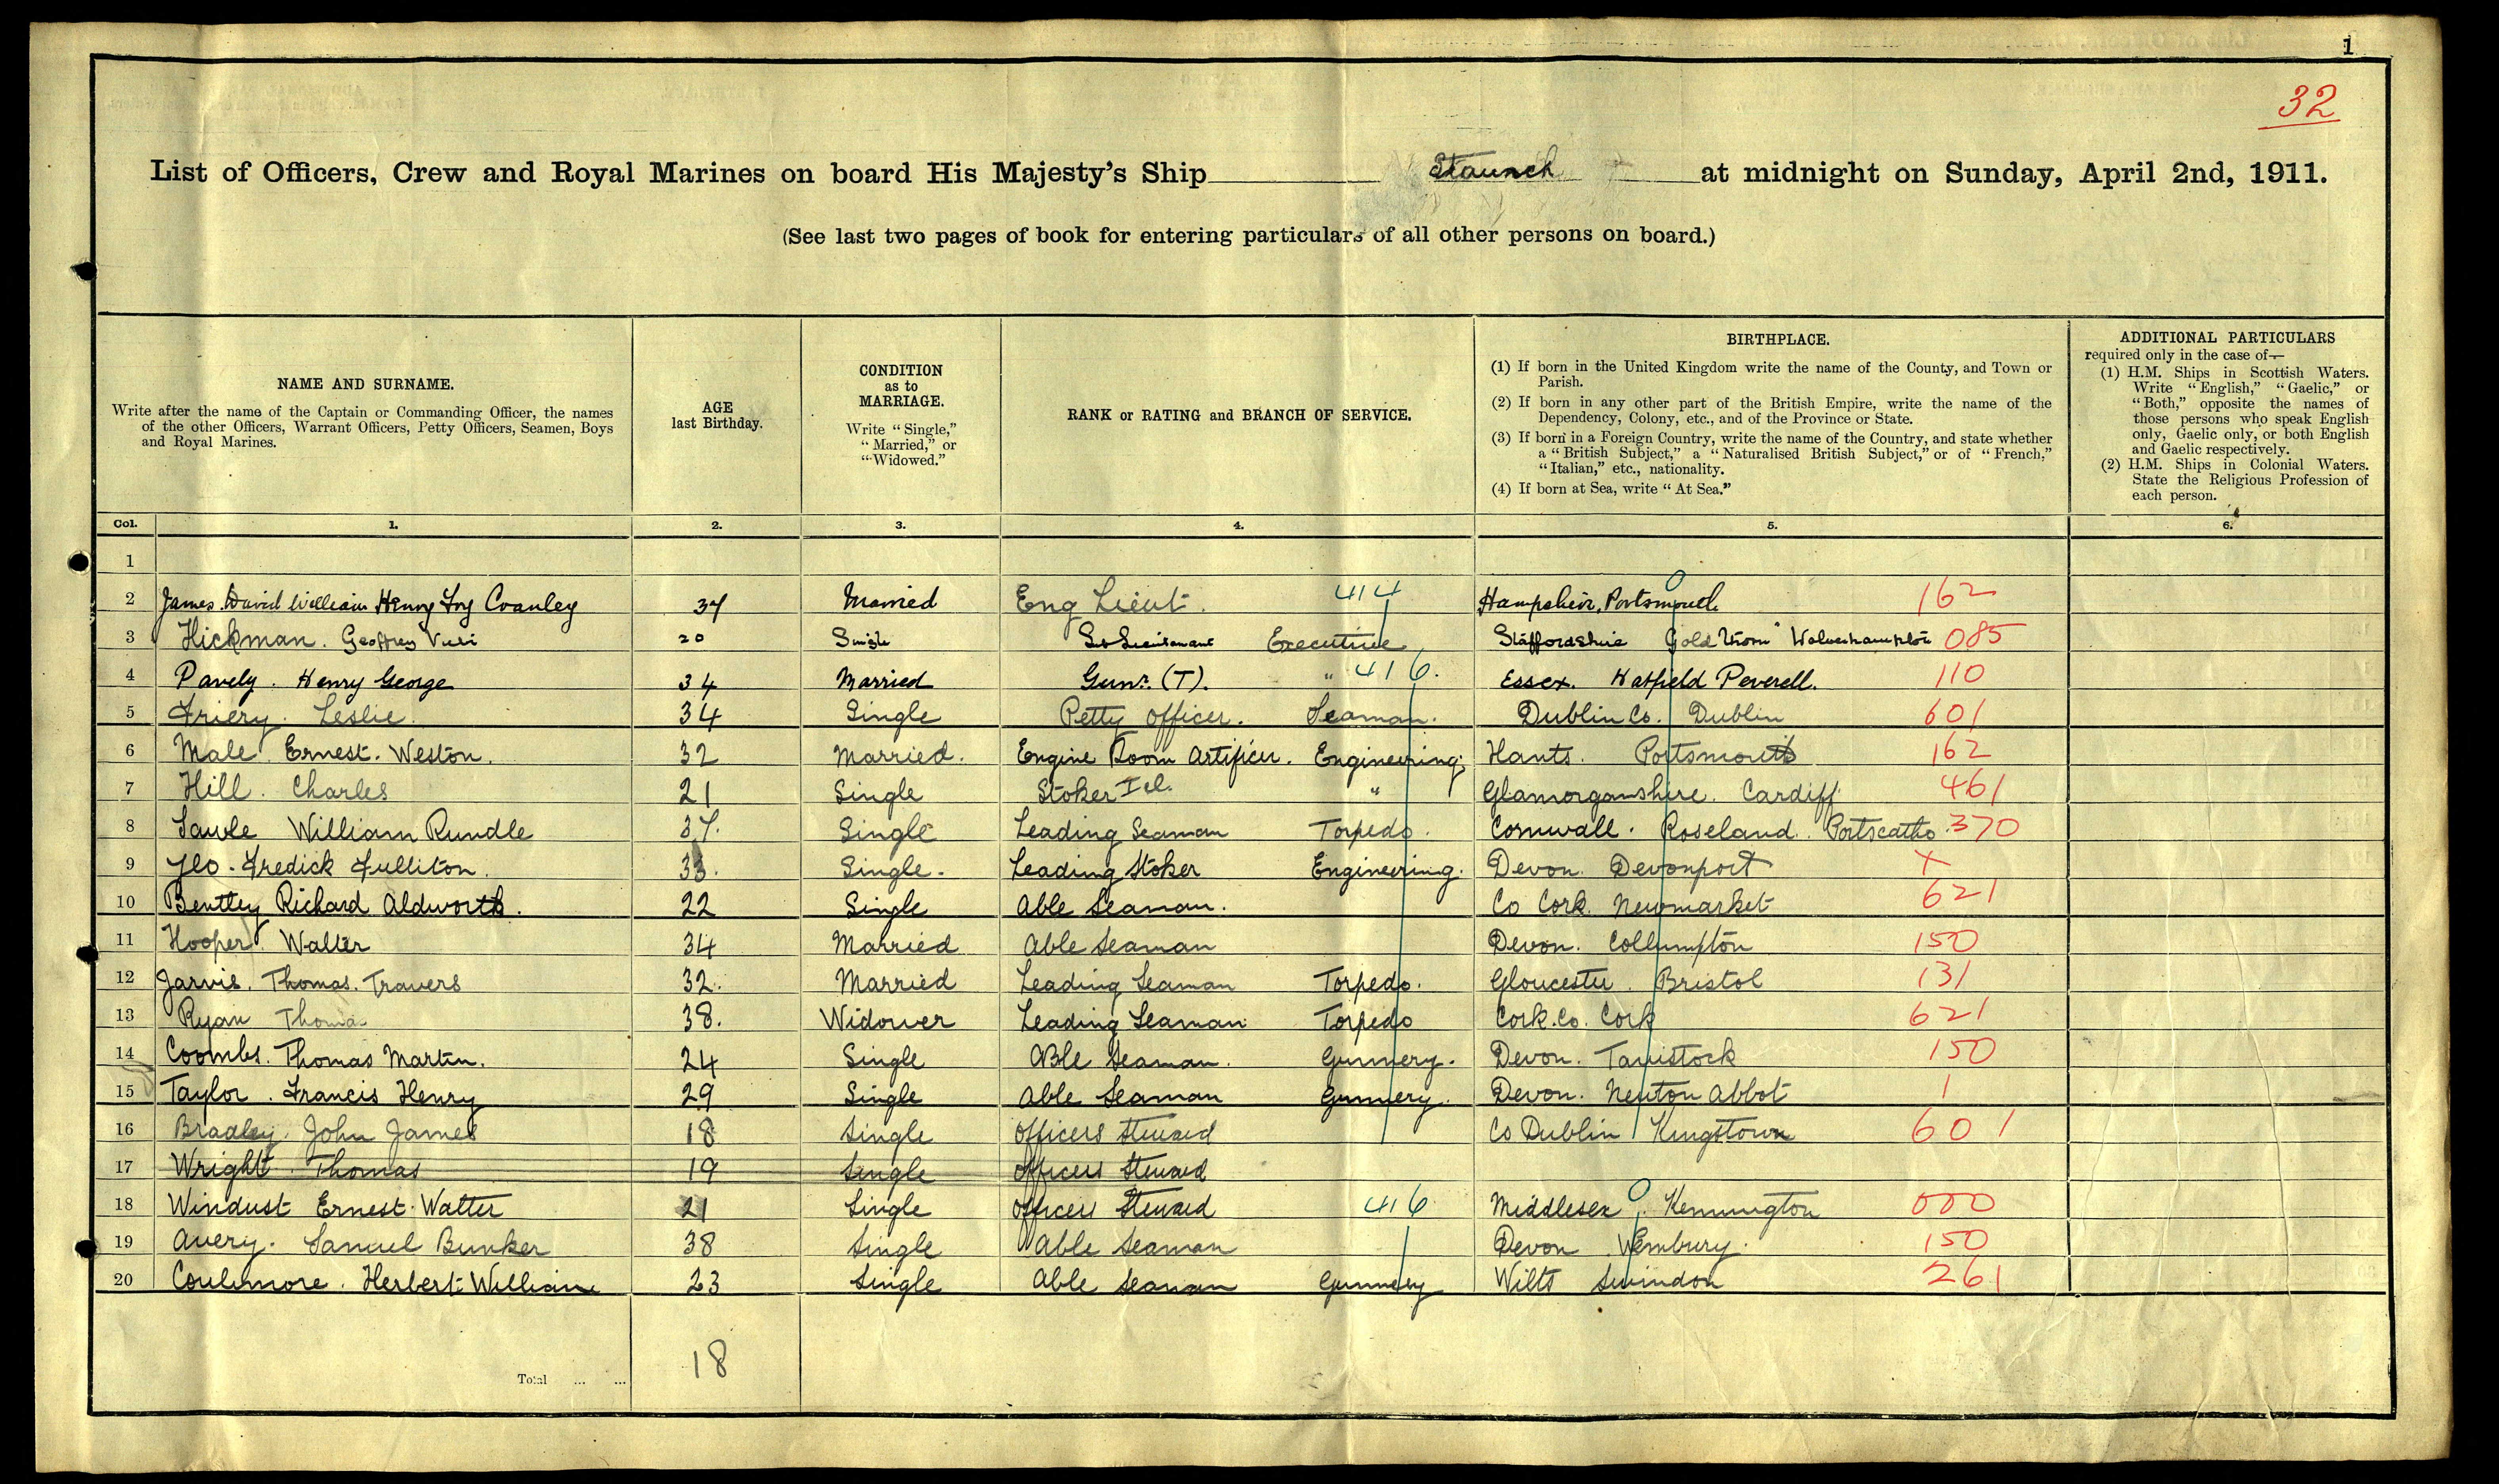 1
32
List of Officers, Crew and Royal Marines on board His Majesty's Ship Staunch at midnight on Sunday, April 2nd, 1911.
(See last two pages of book for entering particulars of all other persons on board.)
NAME AND SURNAME.
Write after the name of the Captain or Commanding Officer, the names
of the other Officers, Warrant Officers, Petty Officers, Seamen, Boys
and Royal Marines.
AGE
last Birthday.
CONDITION
as to
MARRIAGE.
Write "Single,"
"Married," or
"Widowed."
RANK or RATING and BRANCH OF SERVICE.
BIRTHPLACE.
(1) If born in the United Kingdom write the name of the County, and Town or
Parish.
(2) If born in any other part of the British Empire, write the name of the
Dependency, Colony, etc., and of the Province or State.
(3) If born in a Foreign Country, write the name of the Country, and state whether
a "British Subject," a "Naturalised British Subject," or of "French,"
"Italian," etc., nationality.
(4) If born at Sea, write "At Sea."
ADDITIONAL PARTICULARS
required only in the case of—
(1) H.M. Ships in Scottish Waters.
Write "English," "Gaelic," or
"Both," opposite the names of
those persons who speak English
only, Gaelic only, or both English
and Gaelic respectively.
(2) H.M. Ships in Colonial Waters.
State the Religious Profession of
each person.
Col. 1. 2. 3. 4. 5. 6.
1
2 James David William Henry Coanley 37 Married Eng Lieut. 414 Hampshire, Portsmouth 162
3 Hickman. Geoffrey 20 Single Sub Lieutenant Executive Staffordshire Goldthorn Wolverhampton 085
4 Pavely. Henry George 34 Married Gunr. (T). " 416. Essex. Hatfield Peverell. 110
5 Friery. Leslie. 34 Single Petty Officer. Seaman. Dublin Co. Dublin 601
6 Male. Ernest. Weston. 32 Married. Engine Room Artificer. Engineering. Hants. Portsmouth 162
7 Hill. Charles 21 Single Stoker I cl. " Glamorganshire. Cardiff 461
8 Sawle William Rundle 37. Single Leading Seaman Torpedo. Cornwall. Roseland. Portscatho. 370
9 Yeo. Fredick Fulliton. 33. Single. Leading Stoker Engineering. Devon. Devonport X
10 Bentley Richard Aldworth. 22 Single Able Seaman. Co Cork. Newmarket 621
11 Hooper Walter 34 Married Able Seaman Devon. Collumpton 150
12 Jarvis. Thomas. Travers 32. Married Leading Seaman Torpedo. Gloucester. Bristol 131
13 Ryan Thomas 38. Widower Leading Seaman Torpedo Cork. Co. Cork 621
14 Coombs. Thomas Martin. 24 Single Able Seaman. Gunnery. Devon. Tavistock 150
15 Taylor. Francis Henry 29 Single Able Seaman Gunnery. Devon. Newton Abbot 1
16 Bradley. John James 18 Single Officers Steward Co Dublin Kingstown 601
17 Wright. Thomas 19 Single Officers Steward
18 Windust Ernest. Walter 21 Single Officers Steward 416 Middlesex. Kennington 000
19 Avery. Samuel Bunker 38 Single Able Seaman Devon Wembury. 150
20 Coulmore. Herbert William 23 Single Able Seaman Gunnery Wilts Swindon 261
Total ... ... 18